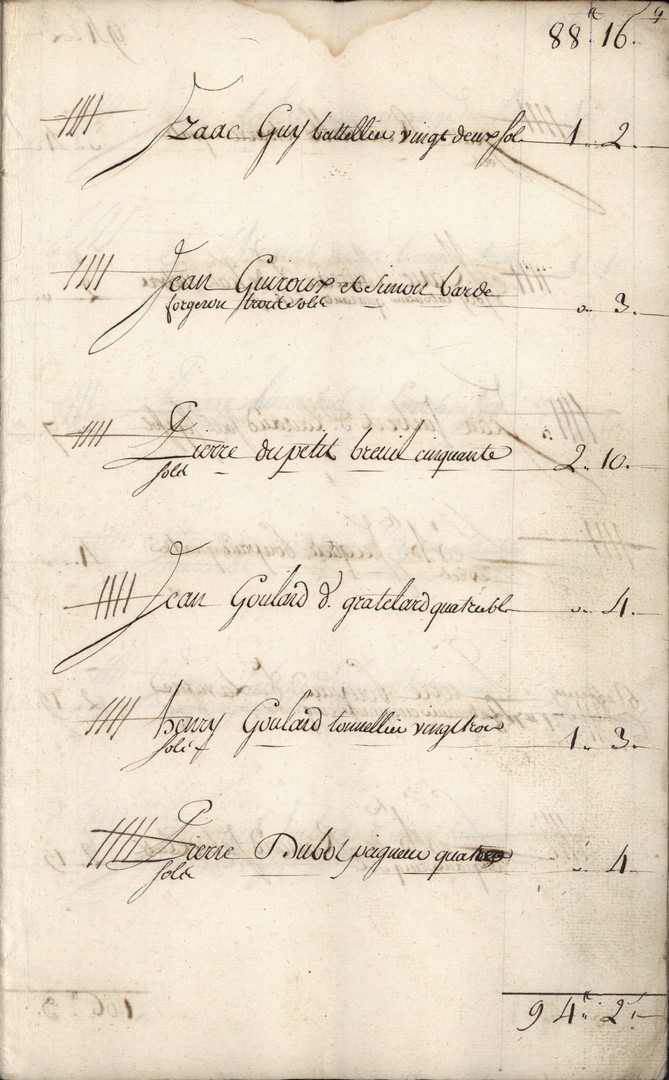 9
88 ₶ 16.
Izaac Guy battellier vingt deux sol. 1. 2.
Jean Guiroux et Simon barde
forgeron trois solz o. 3.
Pierre du petit breuil cinquante
solz 2. 10.
Jean Goulard d. gratelard quatre sol o. 4.
henry Goulard tonnellier vingt trois
solz 1. 3.
Pierre Duboi peigneur quatre
solz o. 4.
94 ₶ 2.